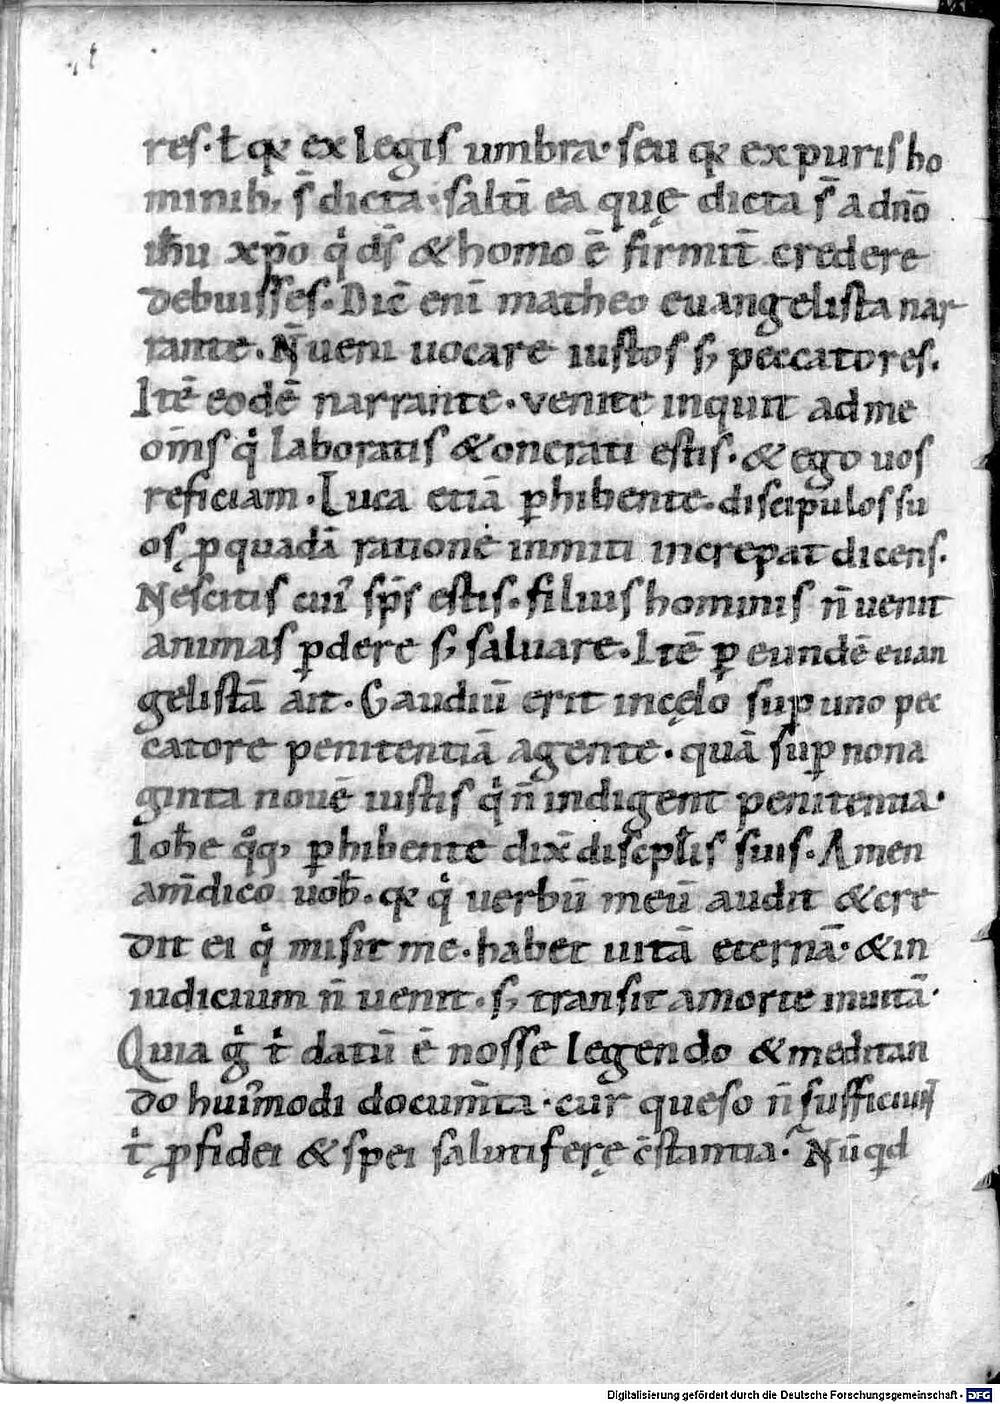 res. ł qꝛ ex legis umbra. seu qꝛ ex puris ho
minib; s̄ dicta. saltī ea quę dicta s̄ a dn̄o
ihu̅ xp̄o qͥ ds̄ & homo ē firmit̄ credere
debuisses. Dic̄ enī matheo euangelista nar-
rante. N̄ ueni uocare iustos s; peccatores.
Itē eodē narrante. venite inquit ad me
om̄s qͥ laboratis & onerati estis. & ego uos
reficiam. Luca etiā ꝑhibente. discipulos su
os ꝓ quadā ratione inmiti increpat dicens.
Nescitis cuiꝰ sp̄s estis. filius hominis n̄ uenit
animas ꝑdere s; saluare. Itē ꝑ eundē euan
gelistā ait. Gaudiū erit in cęlo suꝑ uno pec
catore penitentiā agente. quā suꝑ nona
ginta nouē iustis qͥ n̄ indigent penitentia.
Ioh̄e qͦq; ꝑhibente dix̄ discipłis suis. Amen
am̄ dico uob̄. qꝛ qͥ uerbū meū audit & cre
dit ei qͥ misit me. habet uitā eternā. & in
iudicium n̄ uenit. s; transit a morte in uitā.
Quia gͦ tͥ datū ē nosse legendo & meditan
do huiꝰmodi docum̄ta. cur queso n̄ sufficiunt
tͥ ꝓ fidei & spei salutiferę c̄stantia. Nūqͥd
Digitalisierung gefördert durch die Deutsche Forschungsgemeinschaft - DFG